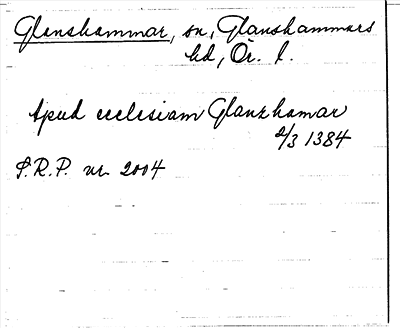 Glanshammar, sn, Glanshammars
hd, Ör. l.
Apud ecclesiam Glanzhamar
2/3 1384
S.R.P. nr 2004